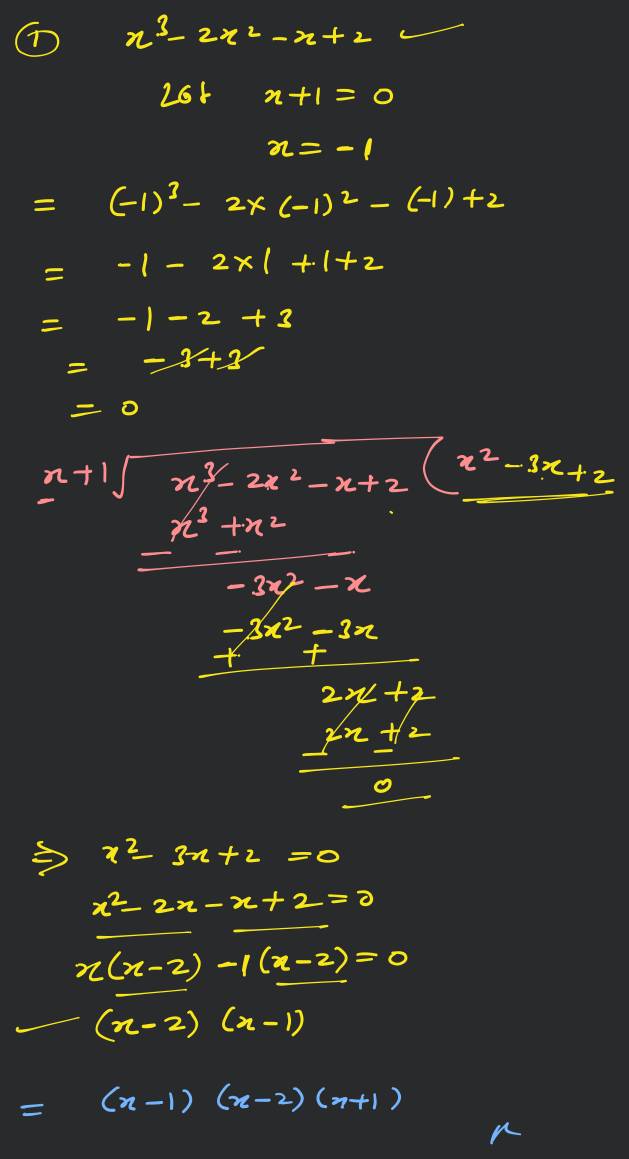 ① x³ - 2x² - x + 2
Let x + 1 = 0
x = -1
= (-1)³ - 2 × (-1)² - (-1) + 2
= -1 - 2 × 1 + 1 + 2
= -1 - 2 + 3
= -3 + 3
= 0
x + 1 √ x³ - 2x² - x + 2 ( x² - 3x + 2
x³ + x²
− − −
-3x² - x
-3x² - 3x
+ +
2x + 2
2x + 2
− −
0
⇒ x² - 3x + 2 = 0
x² - 2x - x + 2 = 0
x(x - 2) - 1(x - 2) = 0
(x - 2) (x - 1)
= (x - 1) (x - 2) (x + 1)